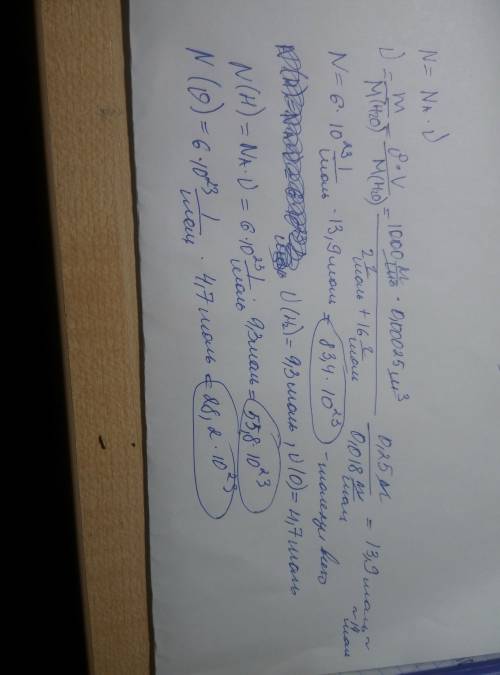 N = N_A · ν
ν = m / M(H₂O) = ρ·V / M(H₂O) = 1000 кг/м³ · 0,00025 м³ / (2 г/моль + 16 г/моль) = 0,25 кг / 0,018 кг/моль = 13,9 моль ≈ 14 моль
N = 6·10²³ 1/моль · 13,9 моль = 83,4·10²³ - молекул всего
ν(H₂) = 9,3 моль, ν(O) = 4,7 моль
N(H) = N_A · ν = 6·10²³ 1/моль · 9,3 моль = 55,8·10²³
N(O) = 6·10²³ 1/моль · 4,7 моль = 28,2·10²³